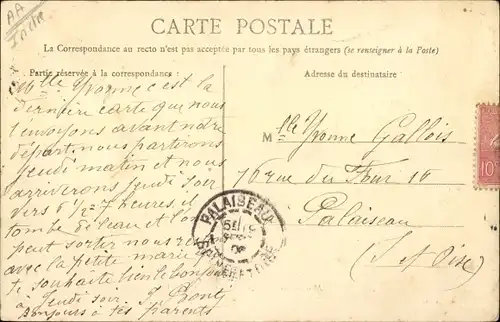 AA
Inde
CARTE POSTALE
La Correspondance au recto n'est pas acceptée par tous les pays étrangers (se renseigner à la Poste)
Partie réservée à la correspondance
Adresse du destinataire
Mlle Yvonne c'est la
dernière carte que nous
t'envoyons avant notre
départ. nous partirons
jeudi matin et nous
arriverons jeudi soir
vers 6 ½ = 7 heures, il
tombe de l'eau et l'on
peut sortir nous
avec la petite marie
souhaite bien le bonjour
à jeudi soir.
Bonjours à tes parents
Mlle Yvonne Gallois
16 rue du Four 16
Palaiseau
(S et Oise)
PALAISEAU
SEINE-ET-OISE
10